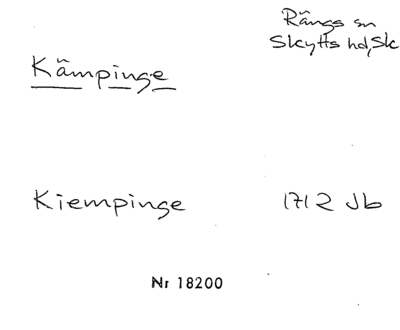 Rängs sn
Skytts hd, Sk
Kämpinge
Kiempinge 1712 Jb
Nr 18200